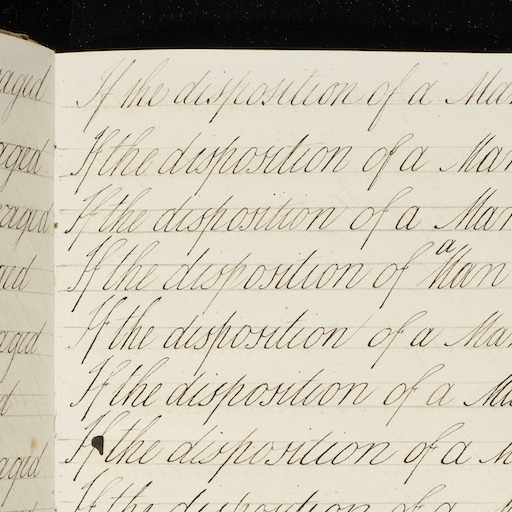 If the disposition of a Man
If the disposition of a Man
If the disposition of a Man
If the disposition of a Man
If the disposition of a Man
If the disposition of a
If the disposition of a
If the disposition of a